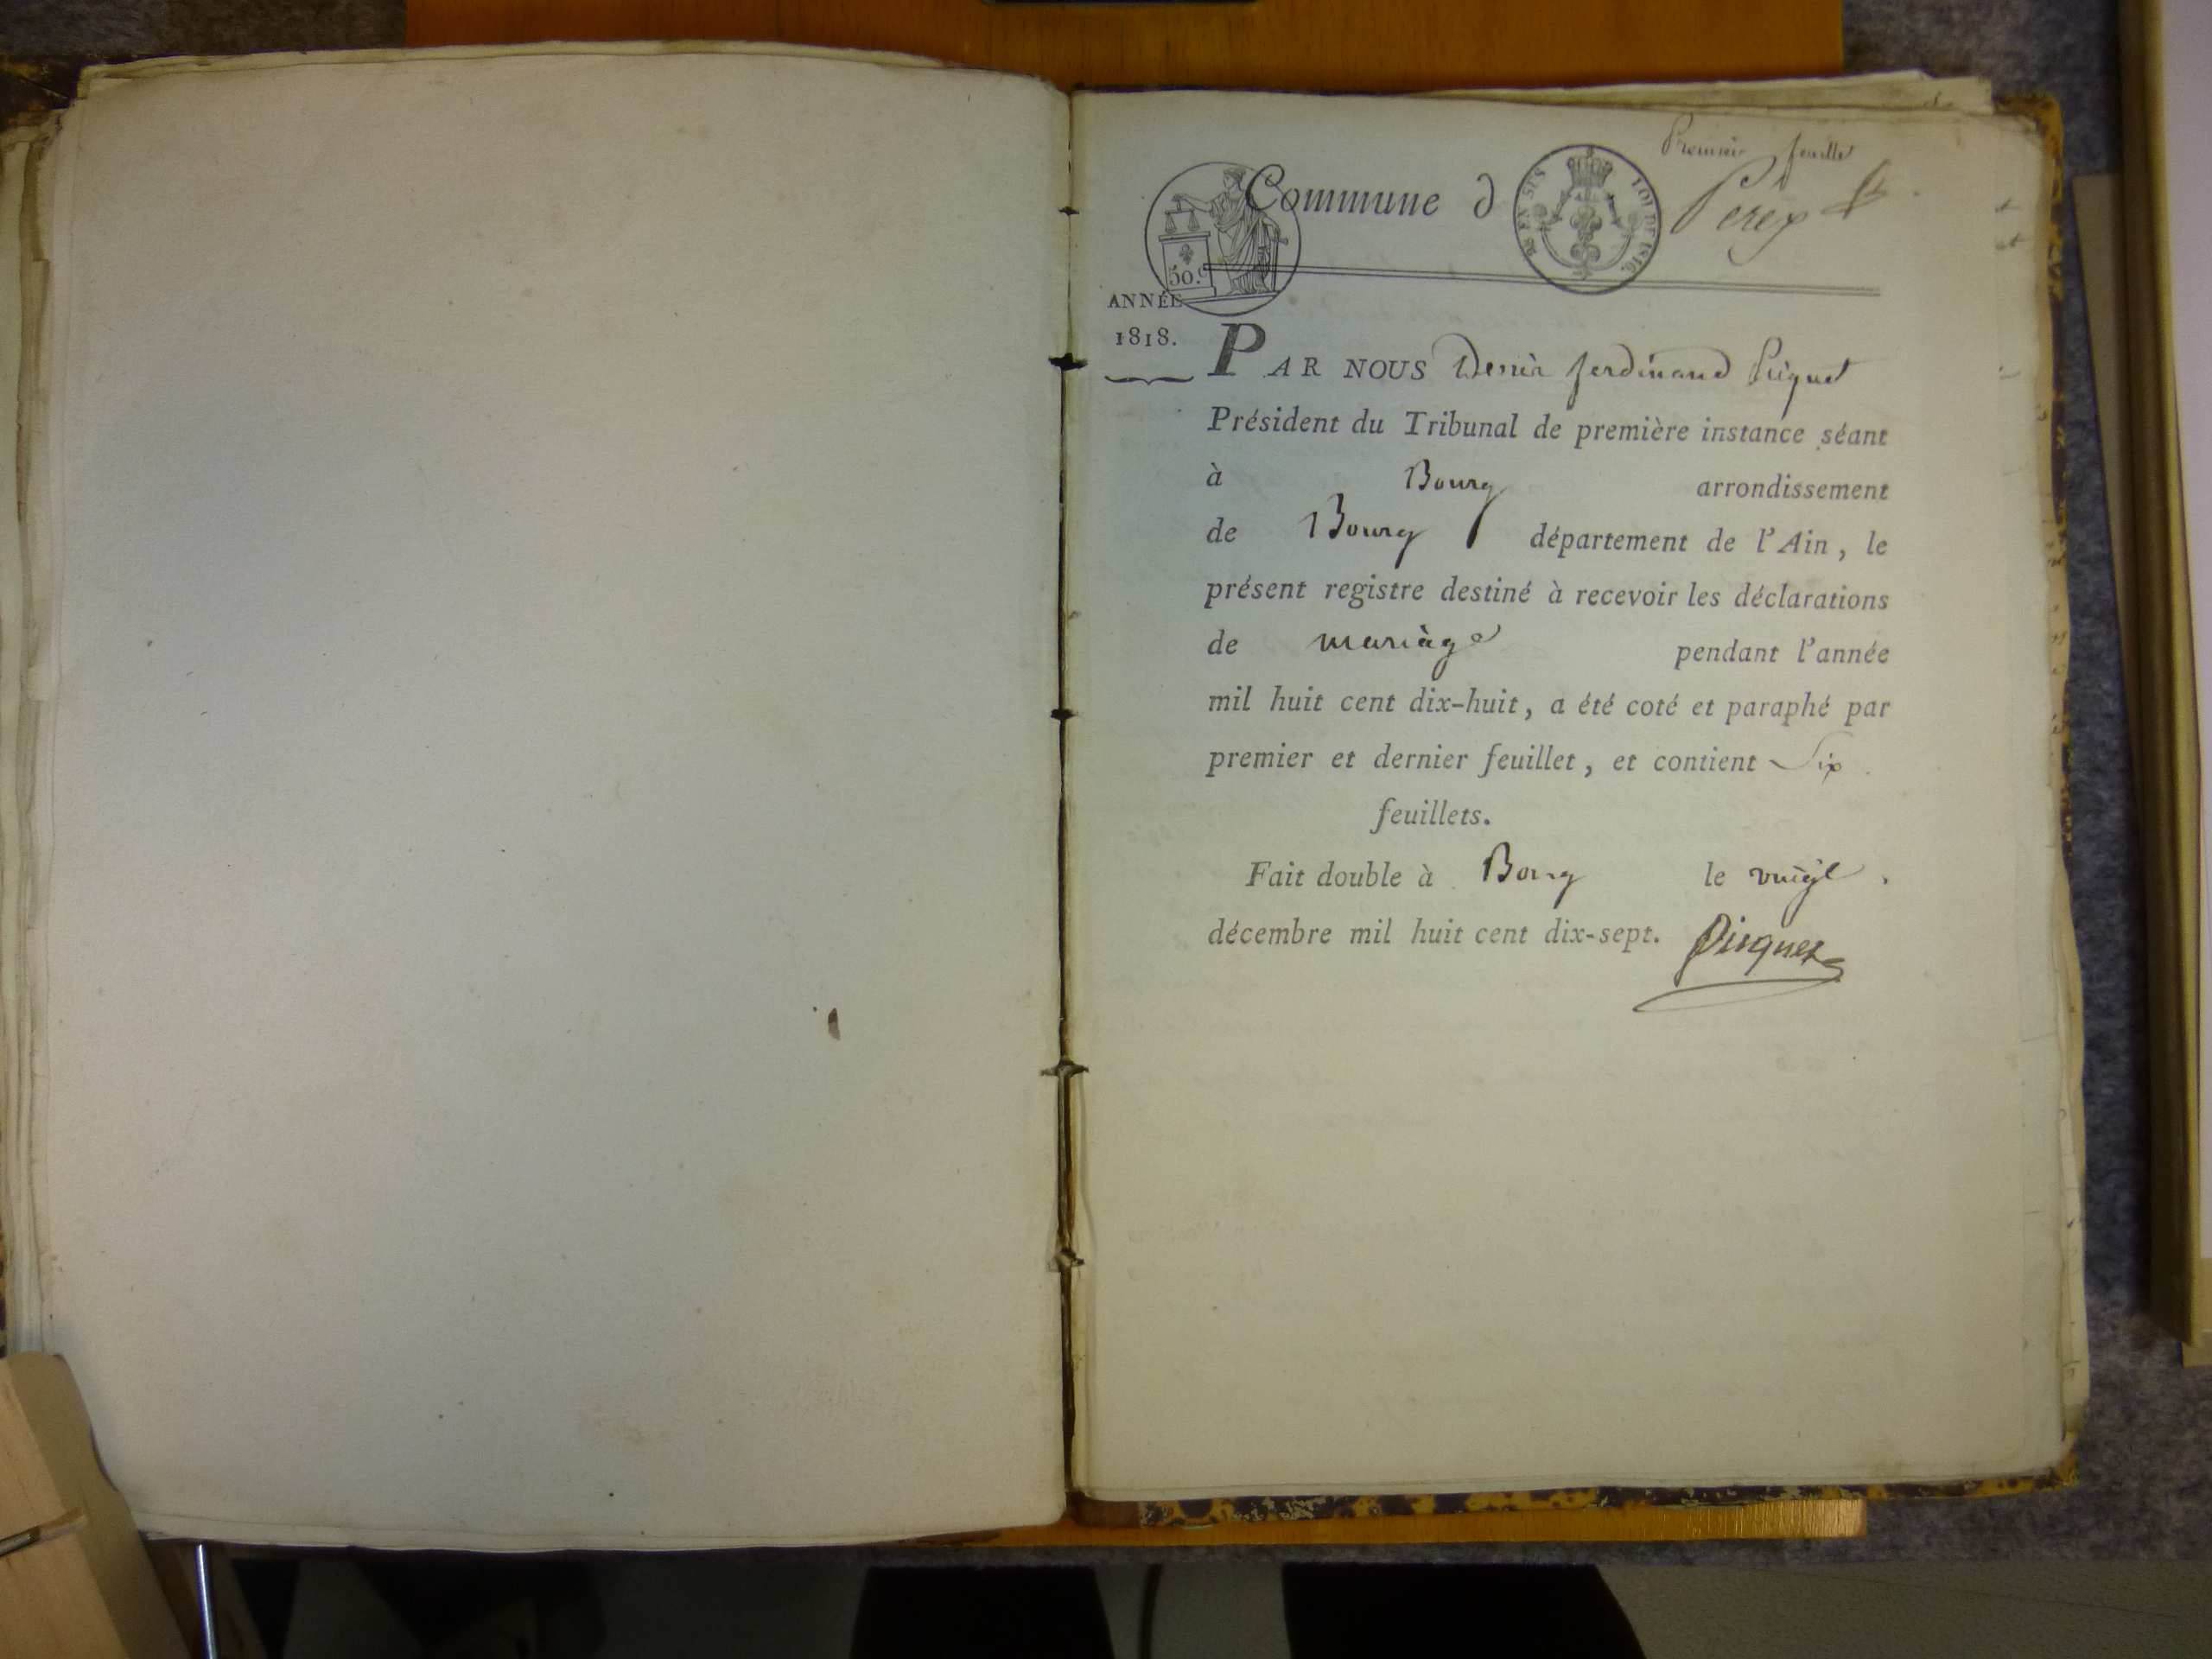 Premier feuillet
Commune d Perex
50.c
25 EN SUS LOI DE 1816.
ANNÉE
1818.
PAR NOUS Denis ferdinand Piquet
Président du Tribunal de première instance séant
à Bourg arrondissement
de Bourg département de l'Ain, le
présent registre destiné à recevoir les déclarations
de mariage pendant l'année
mil huit cent dix-huit, a été coté et paraphé par
premier et dernier feuillet, et contient Six
feuillets.
Fait double à Bourg le vingt
décembre mil huit cent dix-sept. Piquet